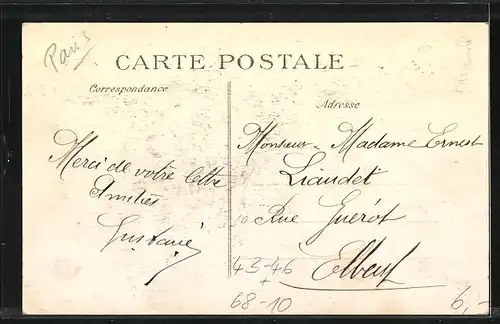 Paris
CARTE POSTALE
Correspondance
Adresse
Merci de votre lettre
Amitiés
Gustave
Monsieur Madame Ernest
Liaudet
10 Rue Guérot
Elbeuf
43-46
+
68-10
6,-